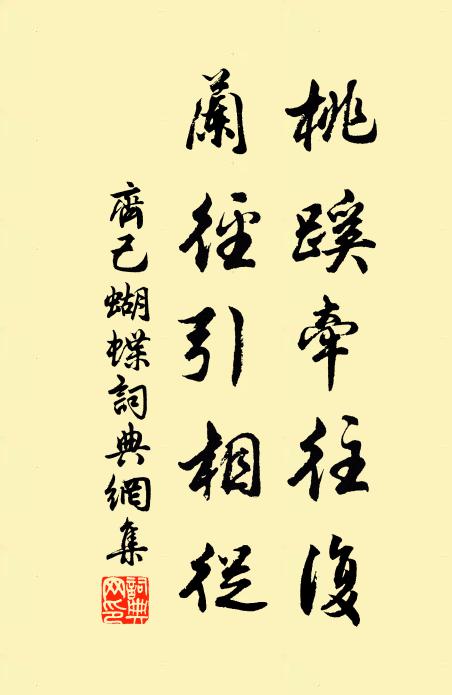 桃蹊牽往復
蘭徑引相從
齊己蝴蝶詞典網集
詞典網印